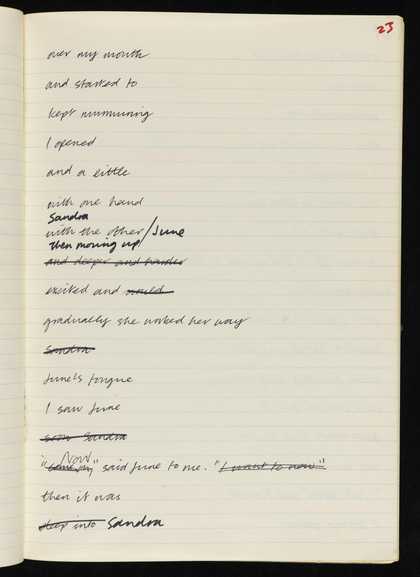 23
over my mouth
and started to
kept murmuring
I opened
and a little
with one hand
Sandra
with the other/June
then moving up
and deeper and harder
excited and
gradually she worked her way
Sandra
June's tongue
I saw June
Sandra
Now
" " said June to me. "I want to now"
then it was
deep into Sandra